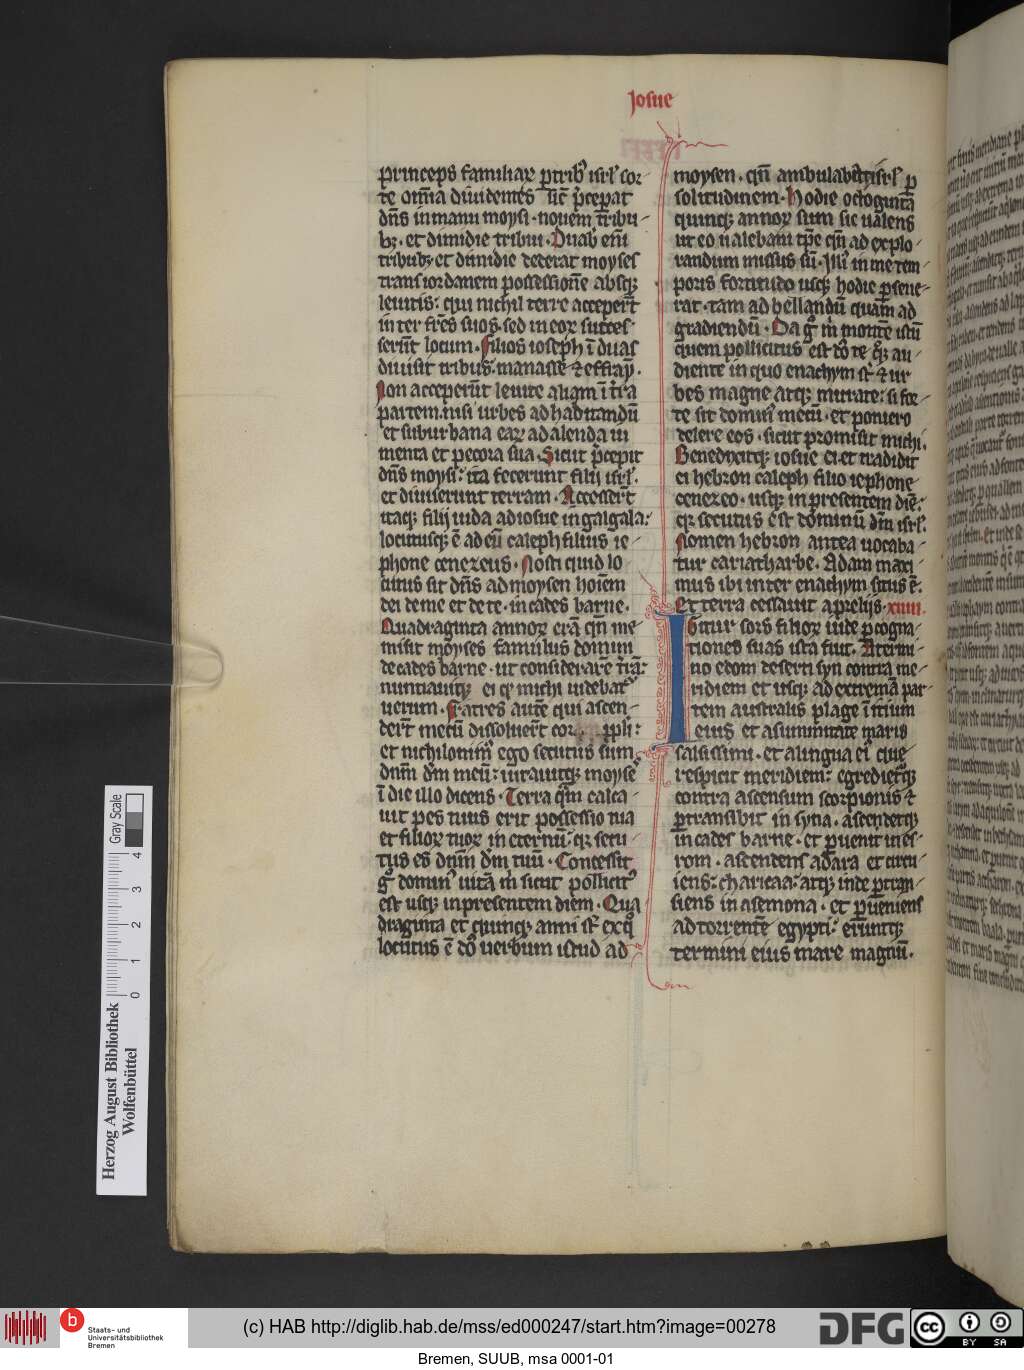 Iosue
princeps familiaꝝ ꝑ tribꝰ isrl̄ sor
te om̄ia diuidentes sic̄ p̄ceperat
dn̄s in manu moysi · nouem tͥbu
bꝫ · et dimidie tribui · Duabꝰ em̄
tribubꝫ et dimidie dederat moyses
trans iordanem possessionē absqꝫ
leuitis : qui nichil terre acceperūt
inter frēs suos · sed in eoꝝ succes
serūt locum · Filios ioseph ī duas
diuisit tribus · manasse ⁊ effraym
Non acceperūt leuite aliam ī tͬra
partem nisi urbes ad habitandū
et suburbana eaꝝ ad alenda iu
menta et pecora sua · Sicut p̄cepit
dn̄s moysi : ita fecerunt filij isrl̄ ·
et diuiserunt terram · Accesserūt
itaqꝫ filij iuda ad iosue in galgala :
locutusqꝫ ē ad eū caleph filius ie
phone cenezeus · Nosti quid lo
cutus sit dn̄s ad moysen hoīem
dei de me et de te · in cades barne ·
Quadraginta annoꝝ erā qn̄ me
misit moyses famulus domini
de cades barne · ut considerarē tͬrā :
nuntiauiqꝫ ei qd̄ michi uidebatᷣ
uerum · Fratres autē qui ascen
derūt mecū dissoluerūt cor ppl̄i :
et nichilominꝰ ego secutus sum
dnm̄ dm̄ meū : iurauitqꝫ moyses
ī die illo dicens · Terra quā calca
uit pes tuus erit possessio tua
et filioꝝ tuoꝝ in eternū · qꝛ secu
tus es dnm̄ dm̄ tuū · Concessit
gͦ dominꝰ uitā m̄ sicut pollicitꝰ
est usqꝫ in presentem diem · Qua
draginta et quinqꝫ anni sͭ ex qͦ
locutus ē dn̄s uerbum istud ad
moysen · qn̄ ambulabat isrl̄ ꝑ
solitudinem · Hodie octoginta
quinqꝫ annoꝝ sum sic ualens
ut eo ualebam tp̄e qn̄ ad explo
randum missus sū · Illiꝰ in me tem
poris fortitudo usqꝫ hodie ꝑseue
rat · tam ad bellandū quam ad
gradiendū · Da gͦ m̄ montē istū
quem pollicitus est dn̄s te qͦqꝫ au
diente in quo enachym sͭ ⁊ ur
bes magne atqꝫ murate : si for
te sit dominꝰ mecū · et potuero
delere eos · sicut promisit michi ·
Benedixitqꝫ iosue ei · et tradidit
ei hebron caleph filio iephone
cenezeo · usqꝫ in presentem diē :
qꝛ secutus est dominū dm̄ isrl̄ ·
Nomen hebron antea uocaba
tur cariatharbe · Adam maxi
mus ibi inter enachym situs ē :
Et terra cessauit a preliis · xiiii ·
Igitur sors filioꝝ iude ꝑ cogna
tiones suas ista fuit · A termi
no edom deserti syn contra me
ridiem et usqꝫ ad extremā par
tem australis plage · ī itium
eius et a summitate maris
salsissimi · et a lingua eiꝰ que
respicit meridiem : egredietᷣqꝫ
contra ascensum scorpionis ⁊
ꝑtransibit in syna · ascenditqꝫ
in cades barne · et ꝑuenit in es
rom · ascendens ad ara et circu
iens : charicaa : atqꝫ inde ꝑtran
siens in asemona · et ꝑueniens
ad torrentē egypti : eruntqꝫ
termini eius mare magnū ·
Gray Scale
4
3
2
1
0
Herzog August Bibliothek
Wolfenbüttel
b
Staats- und
Universitätsbibliothek
Bremen
(c) HAB http://diglib.hab.de/mss/ed000247/start.htm?image=00278
DFG
cc BY SA
Bremen, SUUB, msa 0001-01